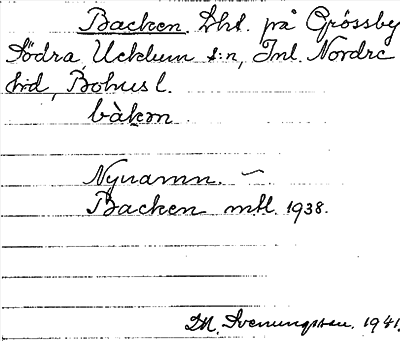 Backen. Lht. på Grössby
Södra, Ucklum s:n, Inl. Nordre
hd, Bohusl.
bàkɘn.
Nynamn. ~
Backen mtl. 1938.
M. Svenungsson. 1941.